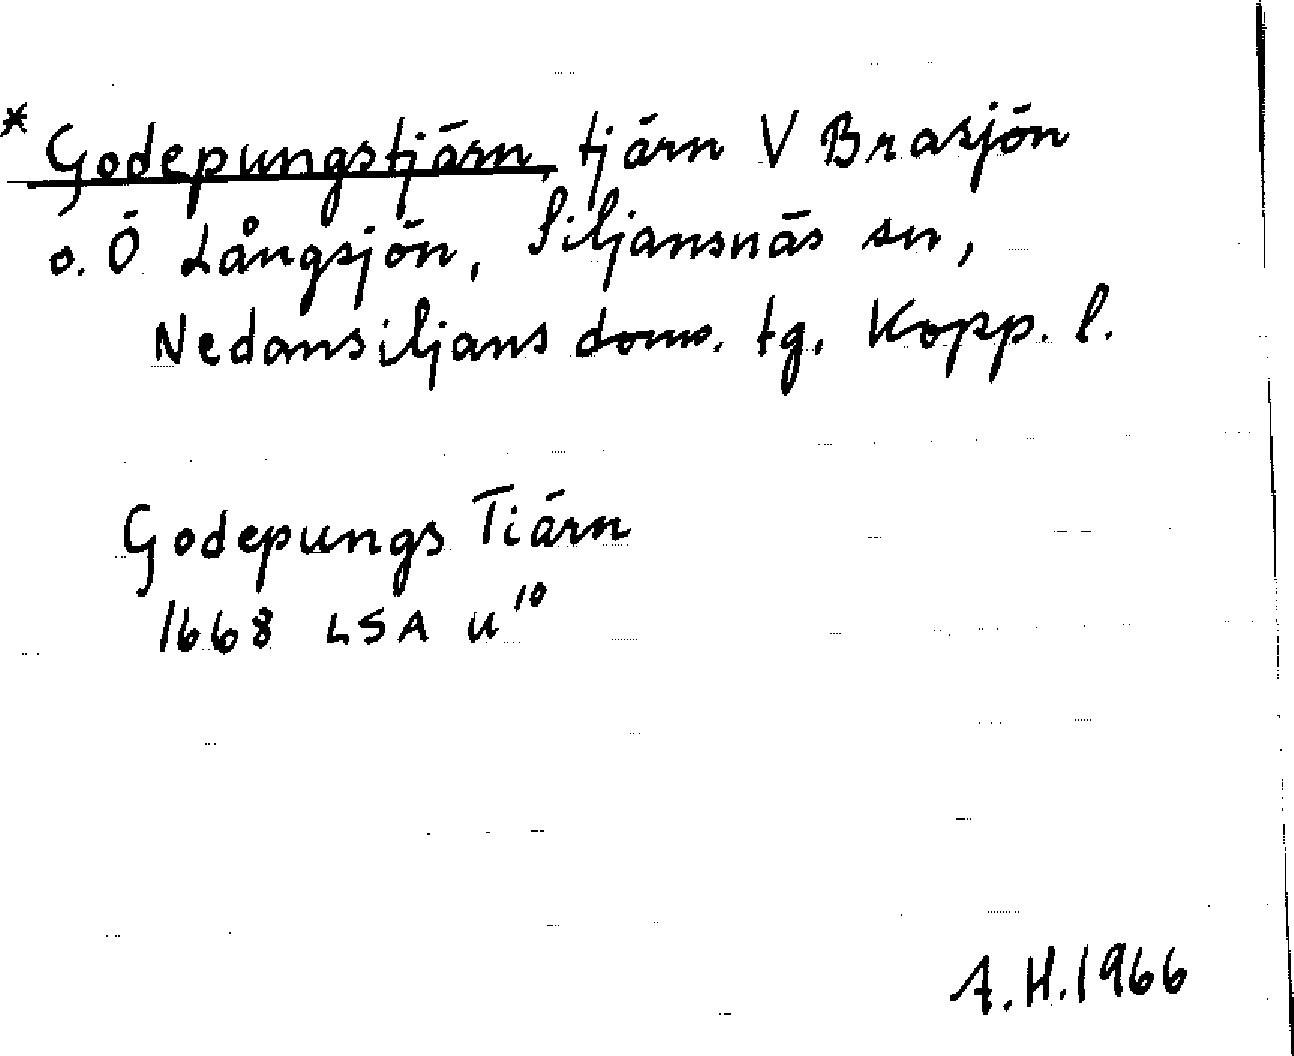 * Godepungstjärn, tjärn V Brasjön
o. Ö Långsjön, Siljansnäs sn,
Nedansiljans doms. tg. Kopp. l.
Godepungs Tiärn
1668 LSA U 10
A.H. 1966